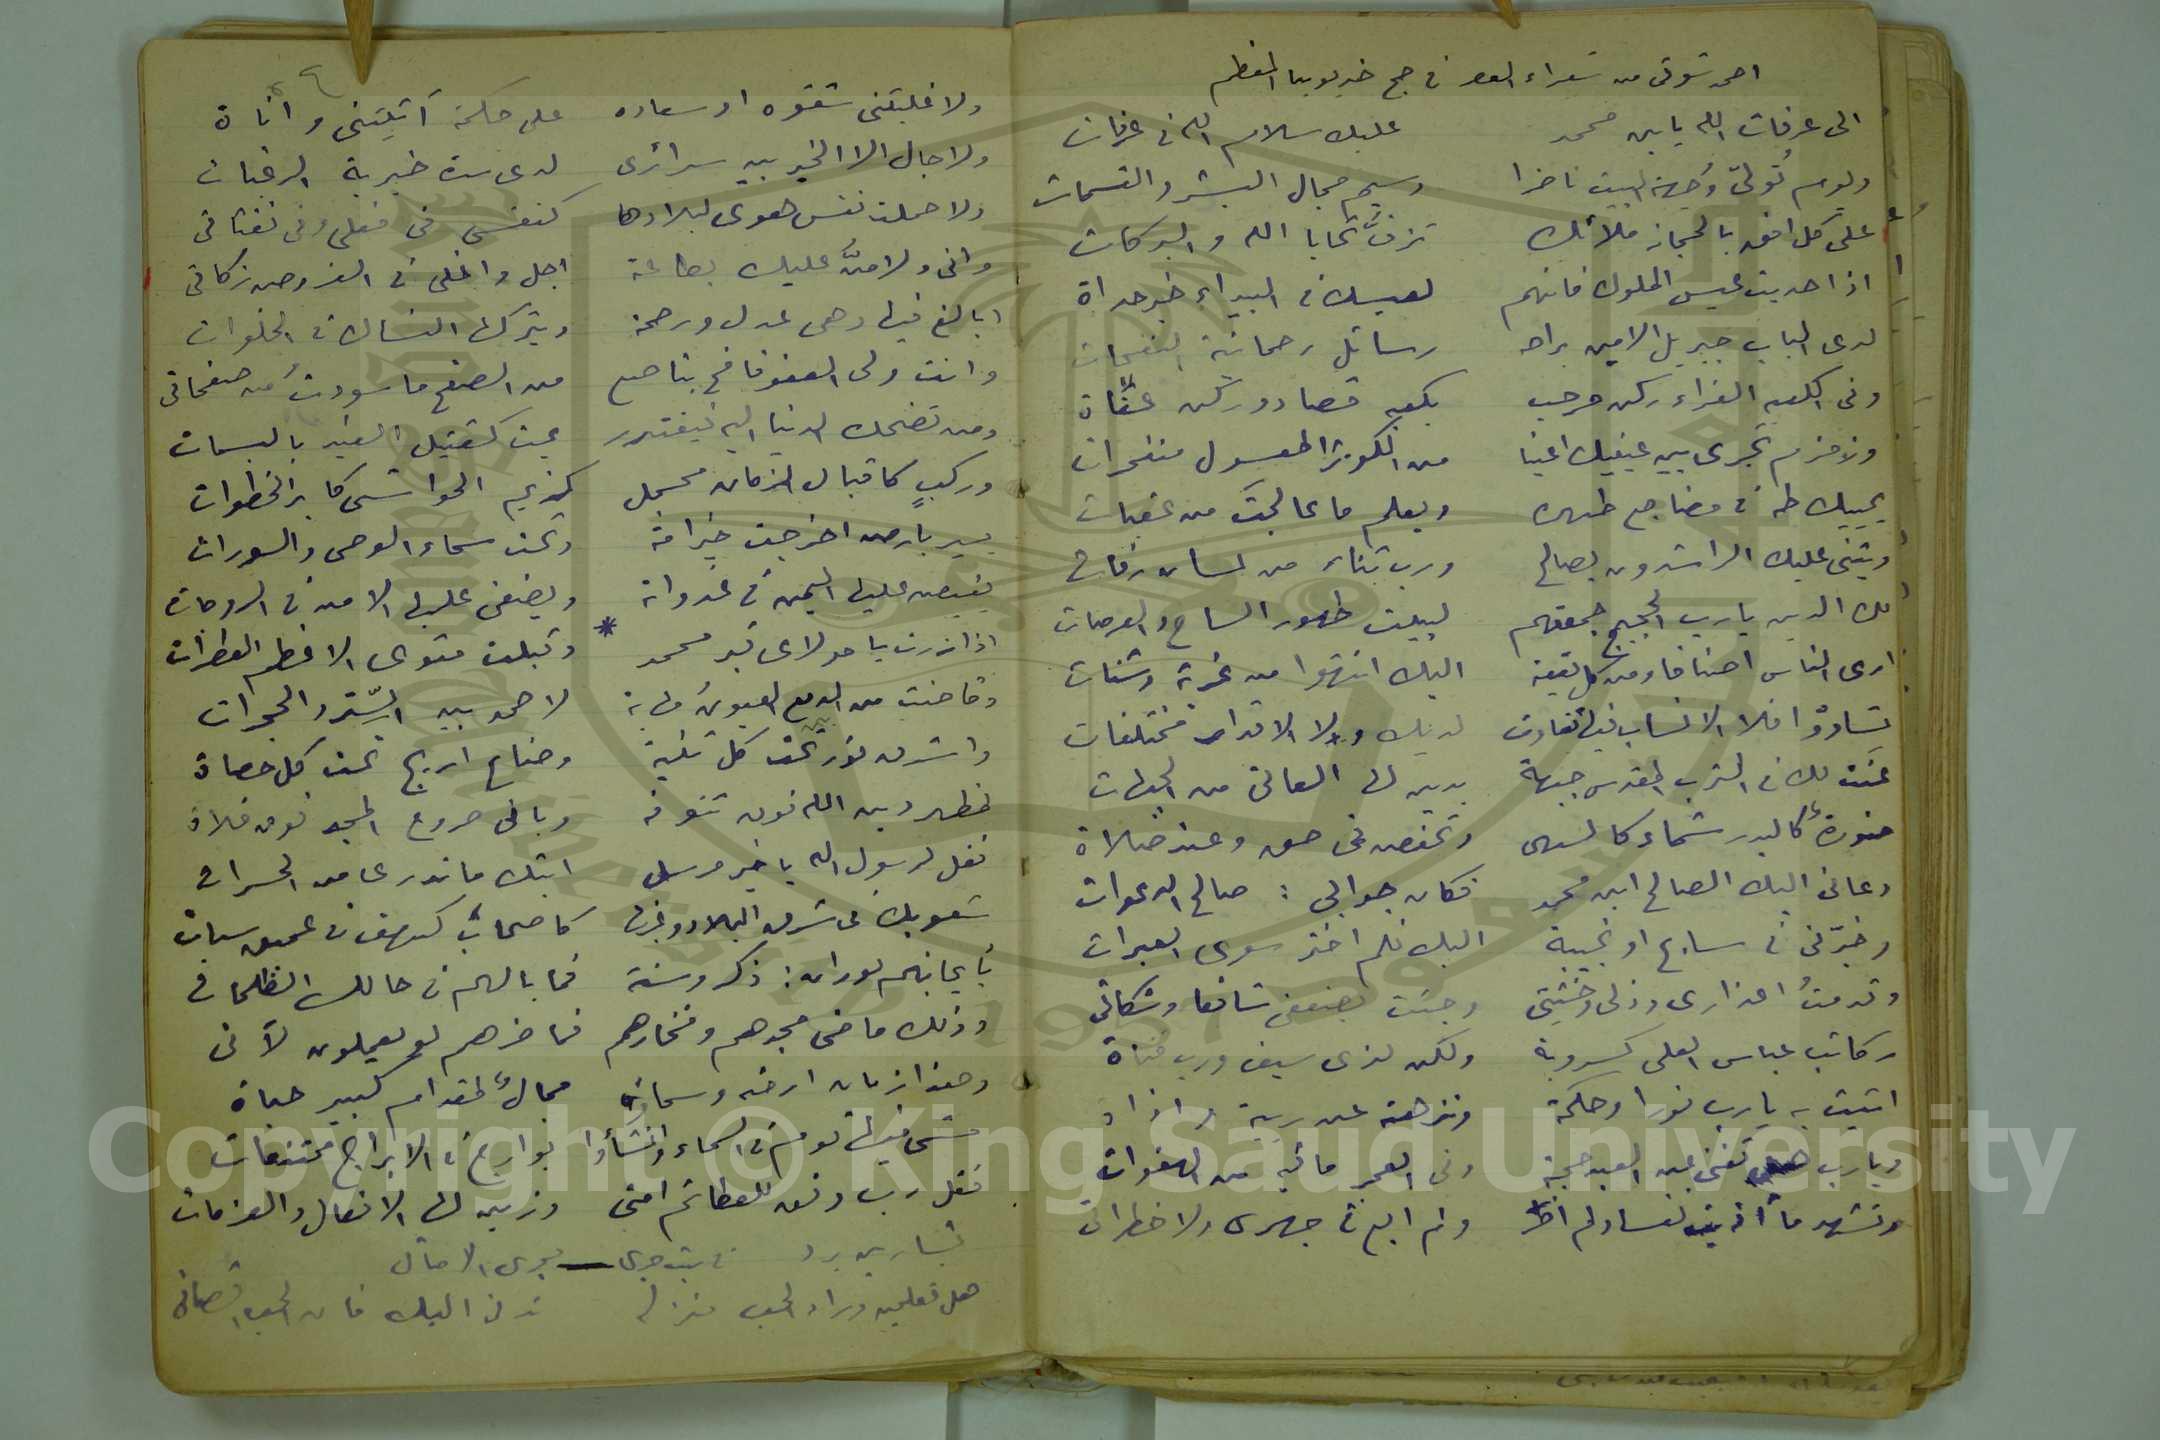 احمد شوقى من شعراء العصر فى حج خديوينا المعظم
الى عرفات الله يا ابن محمد عليك سلام الله فى عرفات
ويوم تُولّى وُجهة البيت ناضرا وسيم مجال البشر والقسمات
على كل افق بالحجاز ملائك تزفُّ تحايا الله والبركات
اذا حديت عيس الملوك فانهم لعيسك فى البيداء خير حداة
لدى الباب جبريل الامين براحه رسائل رحمانية النفحات
وفى الكعبه الغراء ركن مرحب بكعبه قصاد وركن عفاة
وزمزم تجرى بين عينيك اعينا من الكوثر المعسول منفجرات
يحييك طه فى مضاجع طهره ويعلم ما عالجتَ من عقبات
ويثنى عليك الراشدون بصالح ورب ثناء من لسان رفات
لك الدين يا رب الحجيج جمعتهم لبيت طهور الساح والعرصات
ارى الناس اصنافا ومن كل بقعة اليك انتهوا من غربة وشتات
تساوَوْا فلا الانساب فيها تفاوت لديك ولا الاقدار مختلفات
عنَت لك فى الترب المقدس جبهة يدين لها العاتى من الجبهات
منورة كالبدر شماء كالسهى وتخفض فى حق وعند صلاة
دعانى اليك الصالح ابن محمد فكان جوابى : صالح الدعوات
وخيّرنى فى سابح او نجيبة اليك فلم اختر سوى العبرات
وقدمتُ اعذارى وذلى وخشيتى وجئت بضعفى شافعا وشكاتى
ركائب عباس العلى كسروية ولكن لذى سيف ورب قناة
اتيت به يا رب نورا وحكمة ونزهته عن ريبة واذاة
ويا رب هل تغنى عن العبد حجة وفى العمر ما فيه من الهفوات
وتشهد ما آذيت نفسا ولم اضر ولم ابغ فى جهرى ولا خطراتى
ولا غلبتنى شقوه او سعاده على حكمة آتيتنى واناة
ولا جال الا الخير بين سرائرى لدى سدة خيرية الرغبات
ولا حملت نفس هوى لبلادها كنفسى فى فعلى وفى نفثاتى
وانى ولا منٌّ عليك بطاعة اجل واغلى فى الفروض زكاتى
ابالغ فيها وهى عدل ورحمة ويتركها النساك فى الخلوات
وانت ولى العفو فامح بناصع من الصفح ما سودتُ من صفحاتى
ومن تضحك الدنيا اليه فيغترر يمت كقتيل الغيد بالبسمات
وركب كاقبال الزمان محجل كريم الحواشى كابر الخطوات
يسير بارض اخرجت خير امة وتحت سماء الوحى والسورات
يفيض عليها اليمن فى غدواته ويضفى عليها الامن فى الروحات
* اذا زرت يا مولاى قبر محمد وقبلت مثوى الاعظم العطرات
وفاضت من الدمع العيون مهابة لاحمد بين السّتر والحجرات
واشرق نور تحت كل ثنية وضاع اريج تحت كل حصاة
لمظهر دين الله فوق تنوفة وبانى صروح المجد فوق فلاة
فقل لرسول الله يا خير مرسل ابثك ما تدرى من الحسرات
شعوبك فى شرق البلاد وغربها كاصحاب كهف فى عميق سبات
بايمانهم نوران : ذكر وسنة فما بالهم فى حالك الظلمات
وذلك ماضى مجدهم وفخارهم فما ضرهم لو يعملون لآتى
وهذا زمان ارضه وسماؤه مجال لمقدام كبير حياة
مشى فيه قوم فى السماء وانشأوا بوارج فى الابراج ممتنعات
فقل رب وفق للعظائم امتى وزين لها الافعال والعزمات
هل تعلمين وراء الحب منزلة تدنى اليك فان الحب اقصانى
Copyright © King Saud University